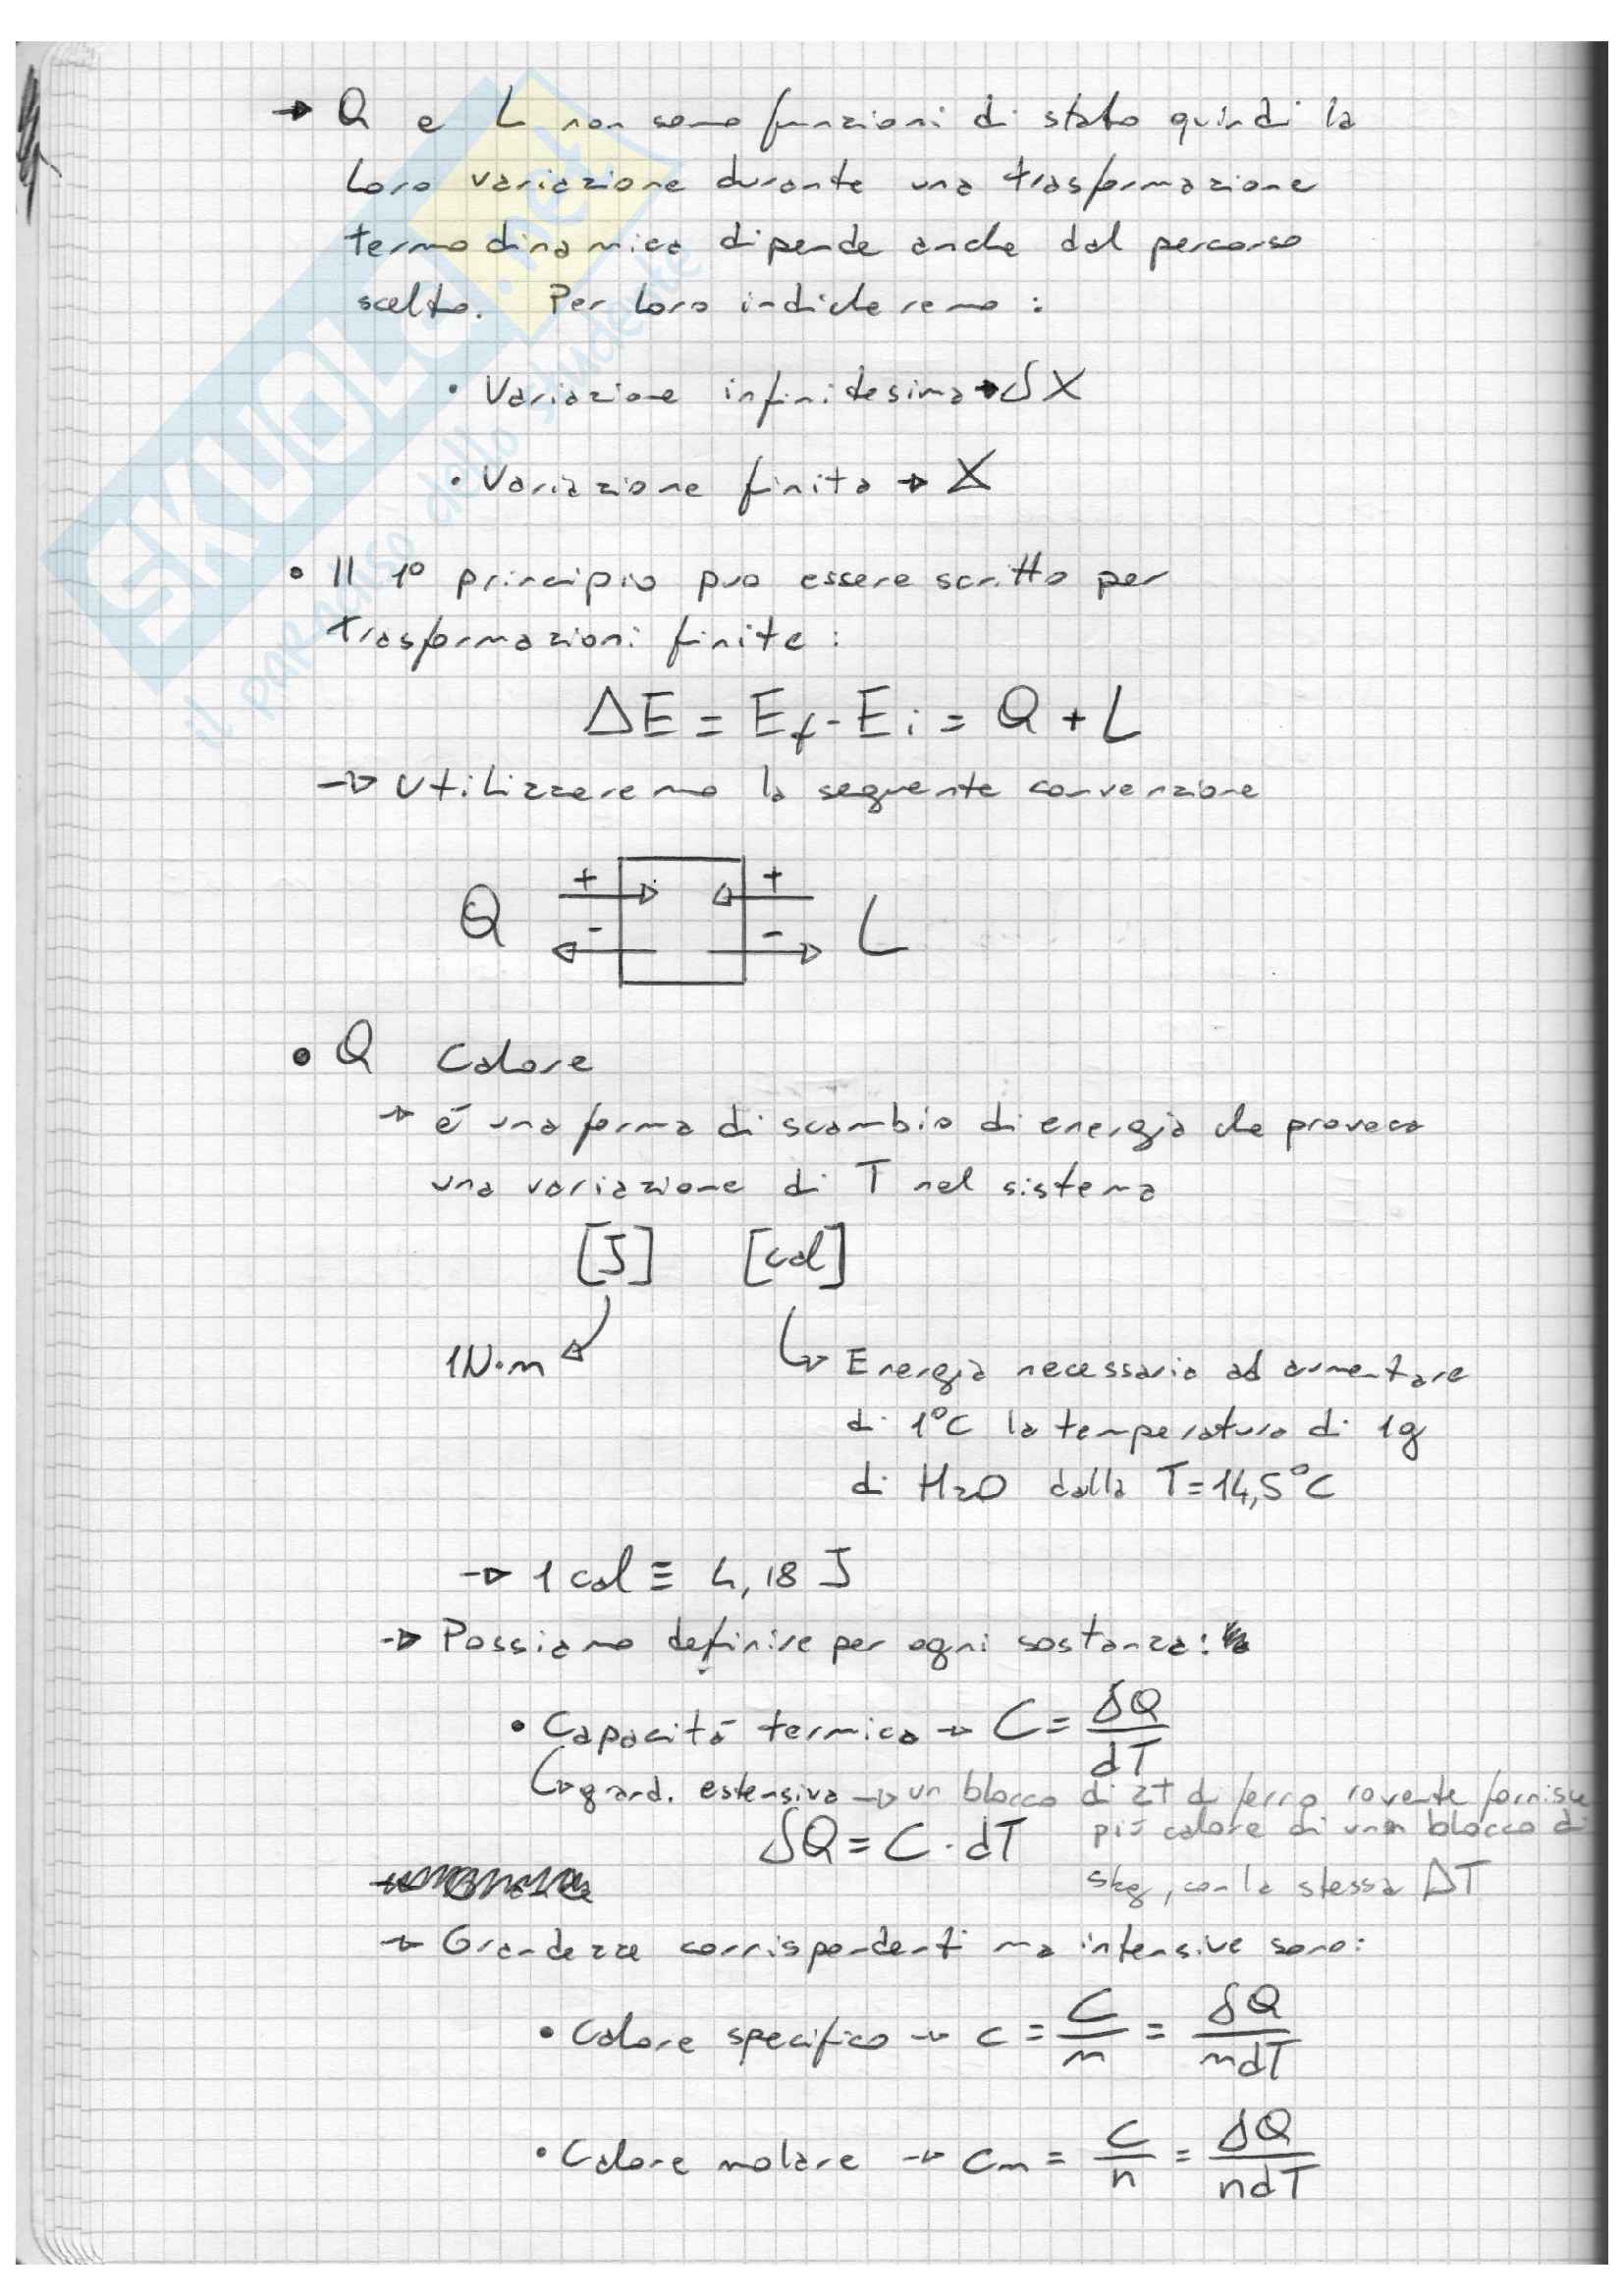 → Q e L non sono funzioni di stato quindi la
loro variazione durante una trasformazione
termodinamica dipende anche dal percorso
scelto. Per loro indicheremo :
• Variazione infinitesima → δX
• Variazione finita → X
• Il 1° principio può essere scritto per
trasformazioni finite :
ΔE = Ef - Ei = Q + L
→ Utilizzeremo la seguente convenzione
+ +
Q L
- -
• Q Calore
→ é una forma di scambio di energia che provoca
una variazione di T nel sistema
[J] [cal]
1N·m
Energia necessaria ad aumentare
di 1°C la temperatura di 1g
di H2O dalla T=14,5°C
→ 1 cal ≡ 4,18 J
→ Possiamo definire per ogni sostanza:
• Capacitá termica → C = δQ/dT
grand. estensiva → un blocco di 2T di ferro rovente fornisce
δQ = C · dT più calore di un blocco di
5kg, con la stessa ΔT
→ Grandezze corrispondenti ma intensive sono:
• Calore specifico → c = C/m = δQ/mdT
• Calore molare → cm = C/n = δQ/ndT
SKUOLA.net
il paradiso dello studente